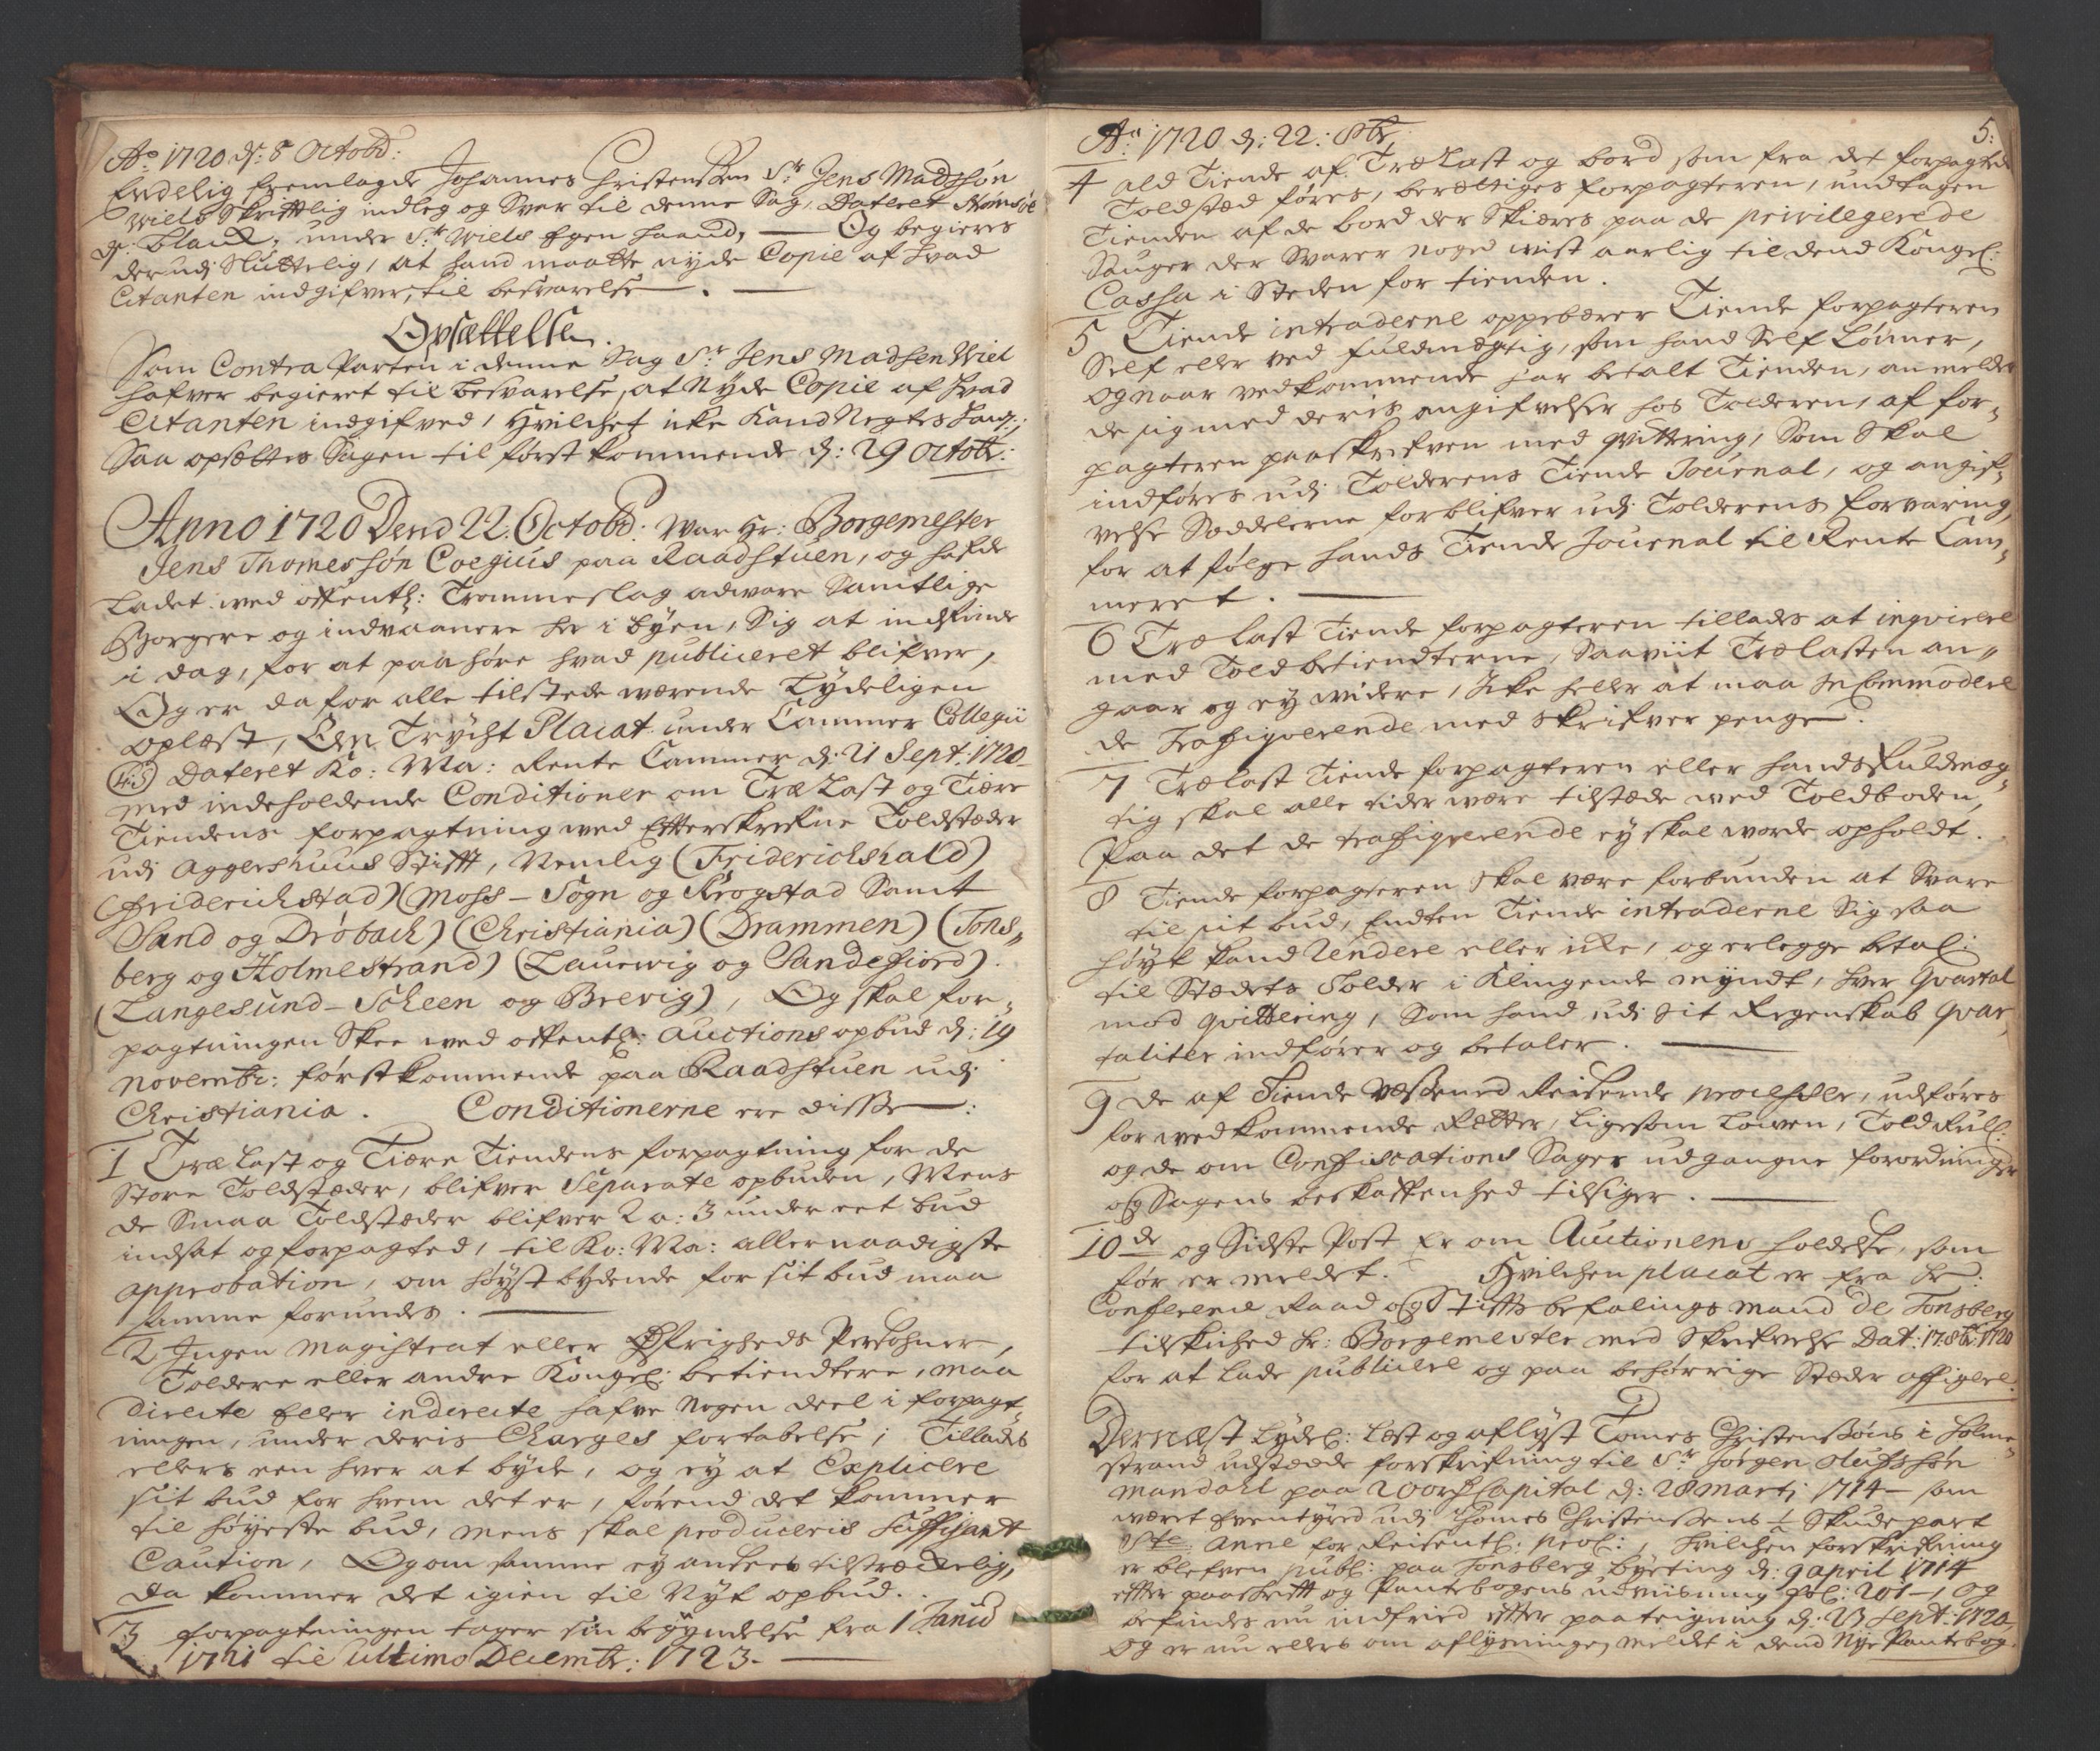 Ao. 1720 d: 8 Octobr:
Endelig fremlagde Johannes Christenssen Sr. Jens Madssøn
Wiels Skrifftlig indleg og Svar til denne Sag, Dateret
d: blanck, under Sr. Wiels Egen haand, — Og begierer
derudj Sluttelig, at hand maatte nyde Copie af hvad
Citanten indgifver, til besvarelse. —
Opsættelse.
Som Contra Parten i denne Sag Sr. Jens Madsen Wiel
hafver begieret til besvarelse, at Nyde Copie af hvad
Citanten indgifved, Hvilchet icke Kand Negtes ham;
Saa opsættes Sagen til først kommende d: 29 Octobr:
Anno 1720 Dend 22. Octobr: War Hr: Borgemester
Jens Thomessøn Coegius paa Raadstuen, og hafde
Ladet ved offentl: Trommeslag advare Samtlige
Borgere og indvaanere her i byen, Sig at indfinde
i dag, for at paahøre hvad publiceret blifver,
Og er da for alle tilstede værende Tydeligen
oplæst, Een Trycht Placat under Cammer Collegii
Dateret Ko: Ma: Rente Cammer d: 21 Sept: 1720
med indeholdende Conditioner om Træ Last og Tiære
Tiendens forpagtning ved Efterskrefne Toldstæder
udj Aggershuus Stifft, Nemlig (Friderichshald)
(Friderichstad) (Moss - Sogn og Krogstad Samt
Sand og Drøbach) (Christiania) (Drammen) (Tons„
berg og Holmestrand) (Laurwig og Sandefiord).
(Langesund - Scheen og Brevig), Og skal for„
pagtningen Skee ved offentl: Auctions opbud d: 19
Novembr: førstkommende paa Raadstuen udj
Christiania. Conditionerne ere disse:
1 Træ Last og Tiære Tiendens forpagtning for de
Store Toldstæder, blifver Separate opbuden, Mens
de Smaa Toldstæder blifver 2 a: 3 under eet bud
indsat og forpagted, til Ko: Ma: allernaadigste
approbation, om høystbydende for sit bud maa
samme forundes. —
2 Ingen Magistrat eller Øfrigheds Persohner,
Toldere eller andre Kongel: betiendtere, maa
Directe Eller indirecte hafve Nogen deel i forpagt„
ningen, under deris Charges fortabelse; Tillades
ellers een hver at byde, og ey at Explicere
sit bud for hvem det er, førend det kommer
til høyeste bud, mens skal produceris Suffisant
Caution, Og om samme ey ansees tilstræckelig,
da kommer det igien til Nyt opbud.
3 forpagtningen tager sin begyndelse fra 1 Janu
1721 til Ultimo Decembr: 1723. —
Ao: 1720 d: 22: 8br 5:
4 ald Tiende af Træ Last og bord som fra det forpagtede
Toldsted føres, berættiges forpagteren, undtagen
Tienden af de bord der Skiæres paa de privilegerede
Sauger der Svarer noged vist aarlig til dend Kongel:
Cassa i Steden for tienden.
5 Tiende intraderne oppebærer Tiende forpagteren
Self eller ved fuldmegtig, som hand Self Lønner,
og naar vedkommende har betalt Tienden, anmelder
de sig med deris angifvelser hos Tolderen, af for„
pagteren paaskrefven med qvittering, Som Skal
indføres udj Tolderens Tiende Journal, og angif„
velse Sæddelerne forblifver udj Tolderens forvaring,
for at følge hands Tiende Journal til Rente Cam„
meret. —
6 Træ Last Tiende forpagteren tillades at inqvirere
med Toldbetiendterne, Saaviit Trælasten an„
gaar og ey videre, Icke heller at maa incommodere
de Trafiqverende med Skrifver penge.
7 Trælast Tiende forpagteren eller hands fuldmæg„
tig skal alle tider være tilstæde ved Toldboden,
Paa det de trafiqverende ey skal worde opholdt.
8 Tiende forpagteren skal være forbunden at Svare
til sit bud, Endten Tiende intraderne Sig saa
høyt kand Rendere eller icke, og erlegge betal:
til Stædets Tolder i Klingende Myndt, hver qvartal
mod qvittering, Som hand udj sit Regenskab qvar„
taliter indfører og betaler. —
9 De af Tiende Væsened Reisende processer, udføres
for vedkommende Rætter, Ligesom Lowen, Toldrull:
og de om Confiscations Sager udgangne forordninger
og Sagens beskaffenhed tilsiger. —
10de og Sidste Post Er om Auctionens holdelse, som
før er meldet. Hvilchen placat er fra Hr:
Conference Raad og Stiftsbefalings mand de Tonsberg
tilskiched Hr: Borgemester med Skrifvelse Dat: 17. 8br: 1720
for at lade publicere og paa behørrige Stæder affigere.
Dernæst Lydel: Læst og aflyst Tomes Christensøns i Holme„
strand udstædde forskrifning til Sr. Jørgen Olufssøn
Mandahl paa 200rd Capital d: 28 Martj 1714 — som
været Eventyred udj Thomes Christensens Skudepart
Ste. Anne for Reisentl: prof:, hvilchen forskrifning
er blefven publ: paa Tonsberg byeting d: 9 april 1714
efter paaskrifft og Pantebogens udviisning fol: 201 —, og
befindes nu indfried efter paateigning d: 23 Sept: 1720,
og er nu ellers om aflysningen meldet i dend Nye Pantebog.